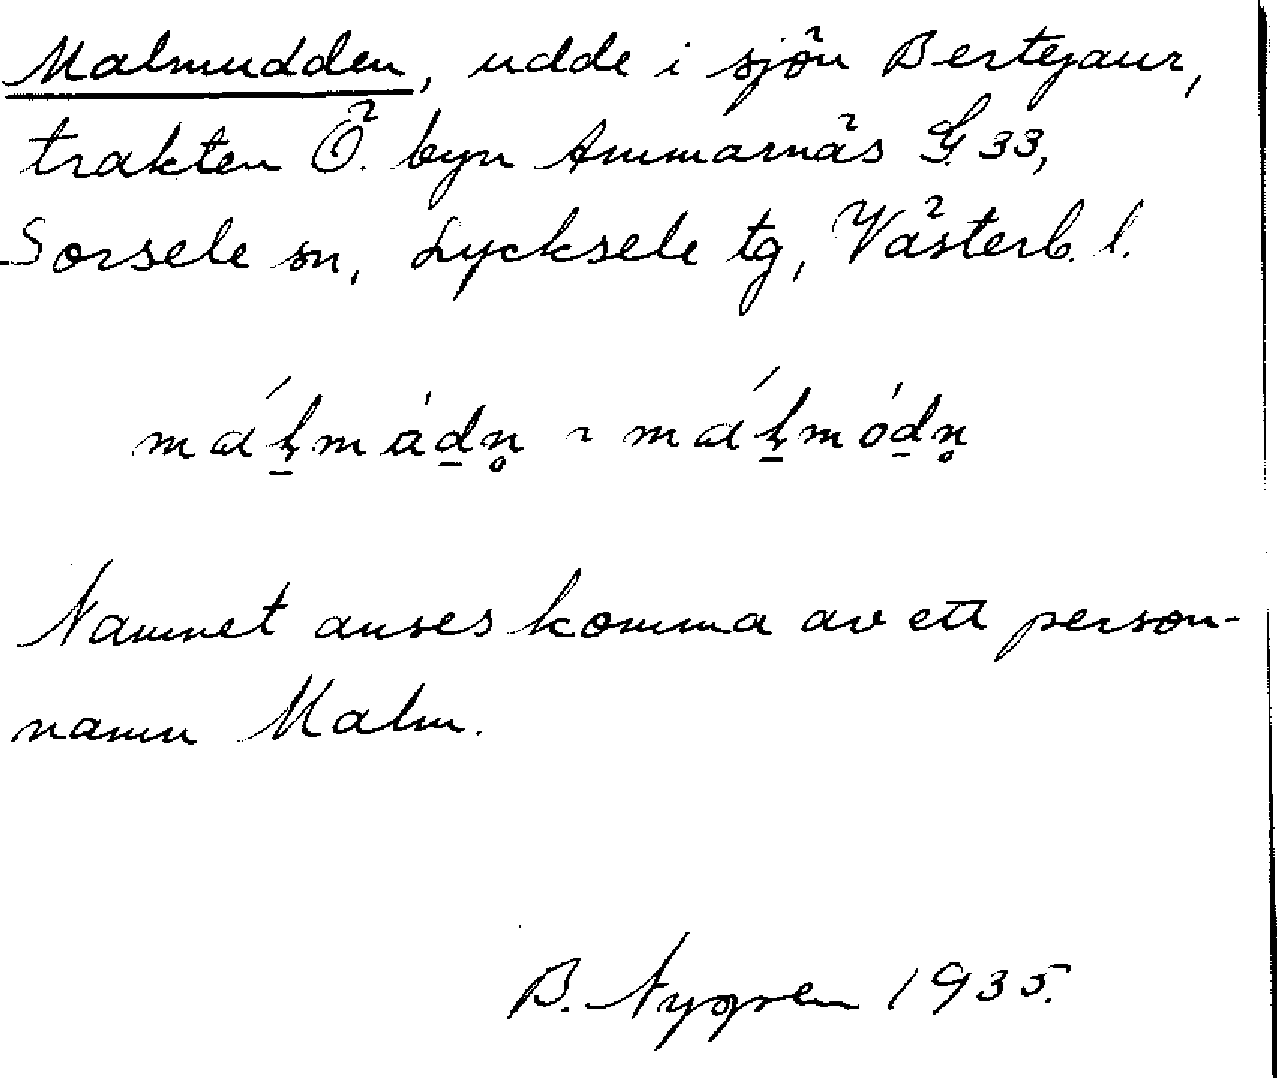 Malmudden, udde i sjön Bertejaur,
trakten Ö. byn Ammarnäs G 33,
Sorsele sn, Lycksele tg, Västerb. l.
Namnet anses komma av ett person-
namn Malm.
B. Nygren 1935.